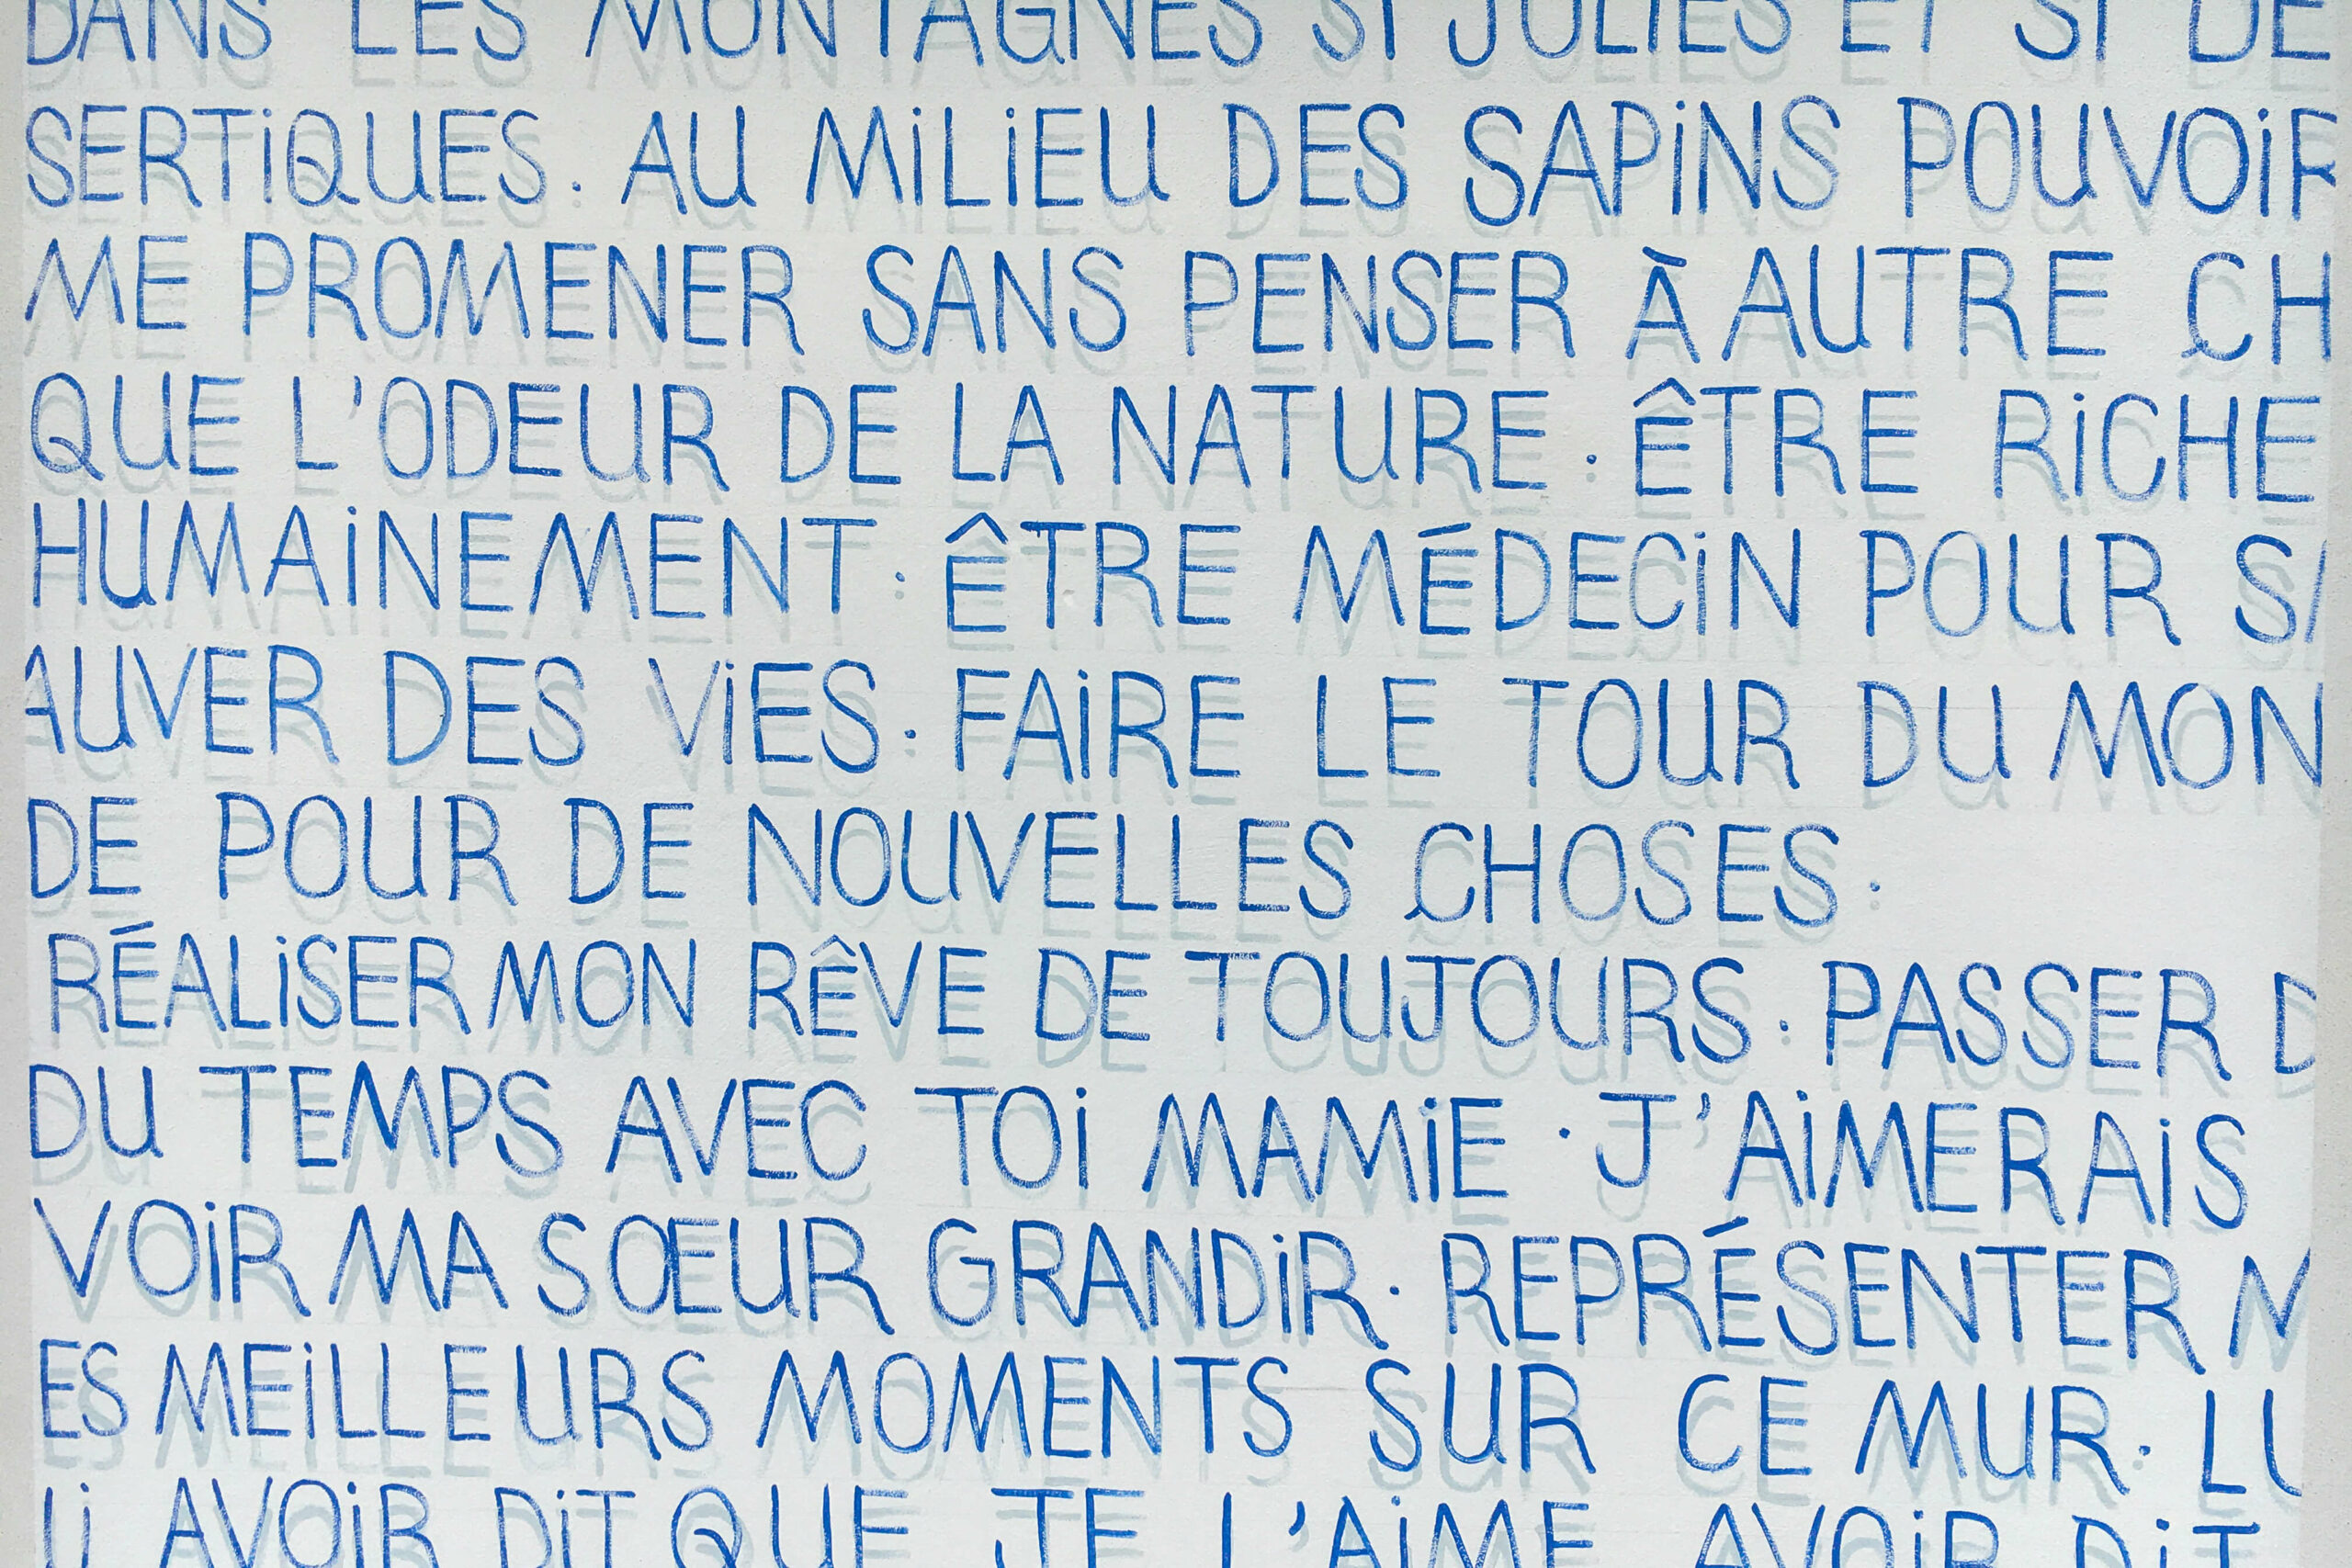 DANS LES MONTAGNES Si JOLIES ET Si DE
SERTiQUES. AU MiLiEU DES SAPiNS POUVOiR
ME PROMENER SANS PENSER À AUTRE CH
QUE L'ODEUR DE LA NATURE. ÊTRE RiCHE
HUMAiNEMENT. ÊTRE MÉDECiN POUR SA
AUVER DES ViES. FAiRE LE TOUR DU MON
DE POUR DE NOUVELLES CHOSES.
RÉALiSER MON RÊVE DE TOUJOURS. PASSER D
DU TEMPS AVEC TOi MAMiE. J'AiMERAiS
VOiR MA SŒUR GRANDiR. REPRÉSENTER M
ES MEiLLEURS MOMENTS SUR CE MUR. LU
Ui AVOiR DiT QUE JE L'AiME AVOiR DiT